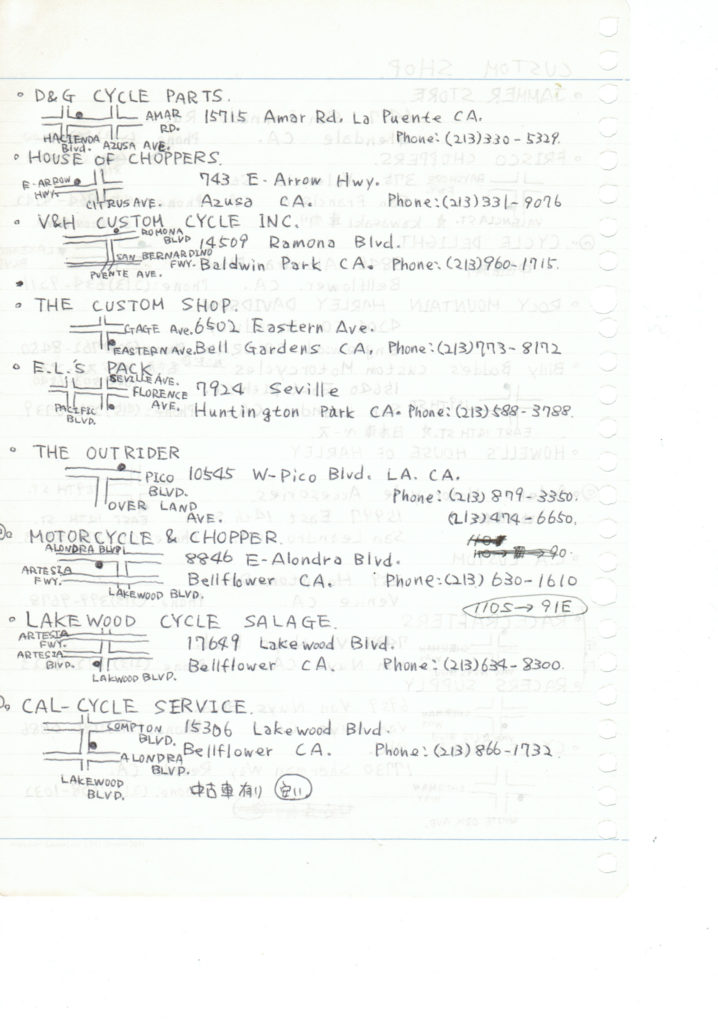 D&G CYCLE PARTS.
AMAR RD. 15715 Amar Rd. La Puente CA.
HACIENDA Blvd. AZUSA AVE. Phone: (213) 330-5329.
HOUSE OF CHOPPERS.
E-ARROW HWY. 743 E-Arrow Hwy.
CITRUS AVE. Azusa CA. Phone: (213) 331-9076
V&H CUSTOM CYCLE INC.
ROMONA BLVD 14509 Ramona Blvd.
SAN BERNARDINO FWY. Baldwin Park CA. Phone: (213) 960-1715.
PUENTE AVE.
THE CUSTOM SHOP.
GAGE Ave. 6502 Eastern Ave.
EASTERN Ave. Bell Gardens CA. Phone: (213) 773-8172
E.L.'S PACK.
SEVILLE AVE.
FLORENCE AVE. 7924 Seville
PACIFIC BLVD. Huntington Park CA. Phone: (213) 588-3788.
THE OUTRIDER
PICO BLVD. 10545 W-Pico Blvd. LA. CA.
Phone: (213) 879-3350.
OVER LAND AVE. (213) 474-6650.
MOTORCYCLE & CHOPPER.
ALONDRA BLVD. 8846 E-Alondra Blvd.
ARTESIA FWY. Bellflower CA. Phone: (213) 630-1610
LAKEWOOD BLVD.
110S → 91E
LAKEWOOD CYCLE SALAGE.
ARTESIA FWY. 17649 Lakewood Blvd.
ARTESIA BLVD. Bellflower CA. Phone: (213) 634-8300.
LAKWOOD BLVD.
CAL-CYCLE SERVICE.
COMPTON BLVD. 15306 Lakewood Blvd.
ALONDRA BLVD. Bellflower CA. Phone: (213) 866-1732
LAKEWOOD BLVD. 中古車有り 安い